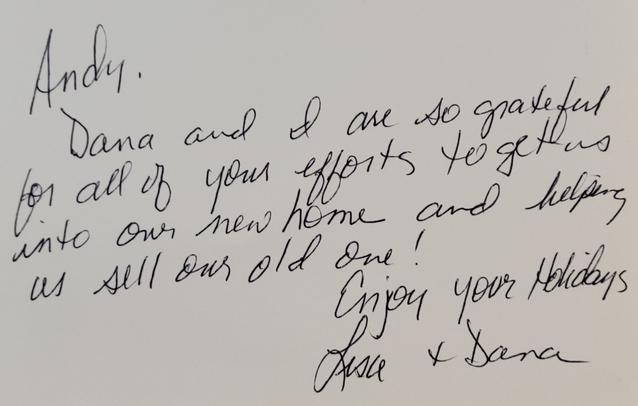 Andy.
Dana and I are so grateful
for all of your efforts to get us
into our new home and helping
us sell our old one!
Enjoy your Holidays
Lisa + Dana